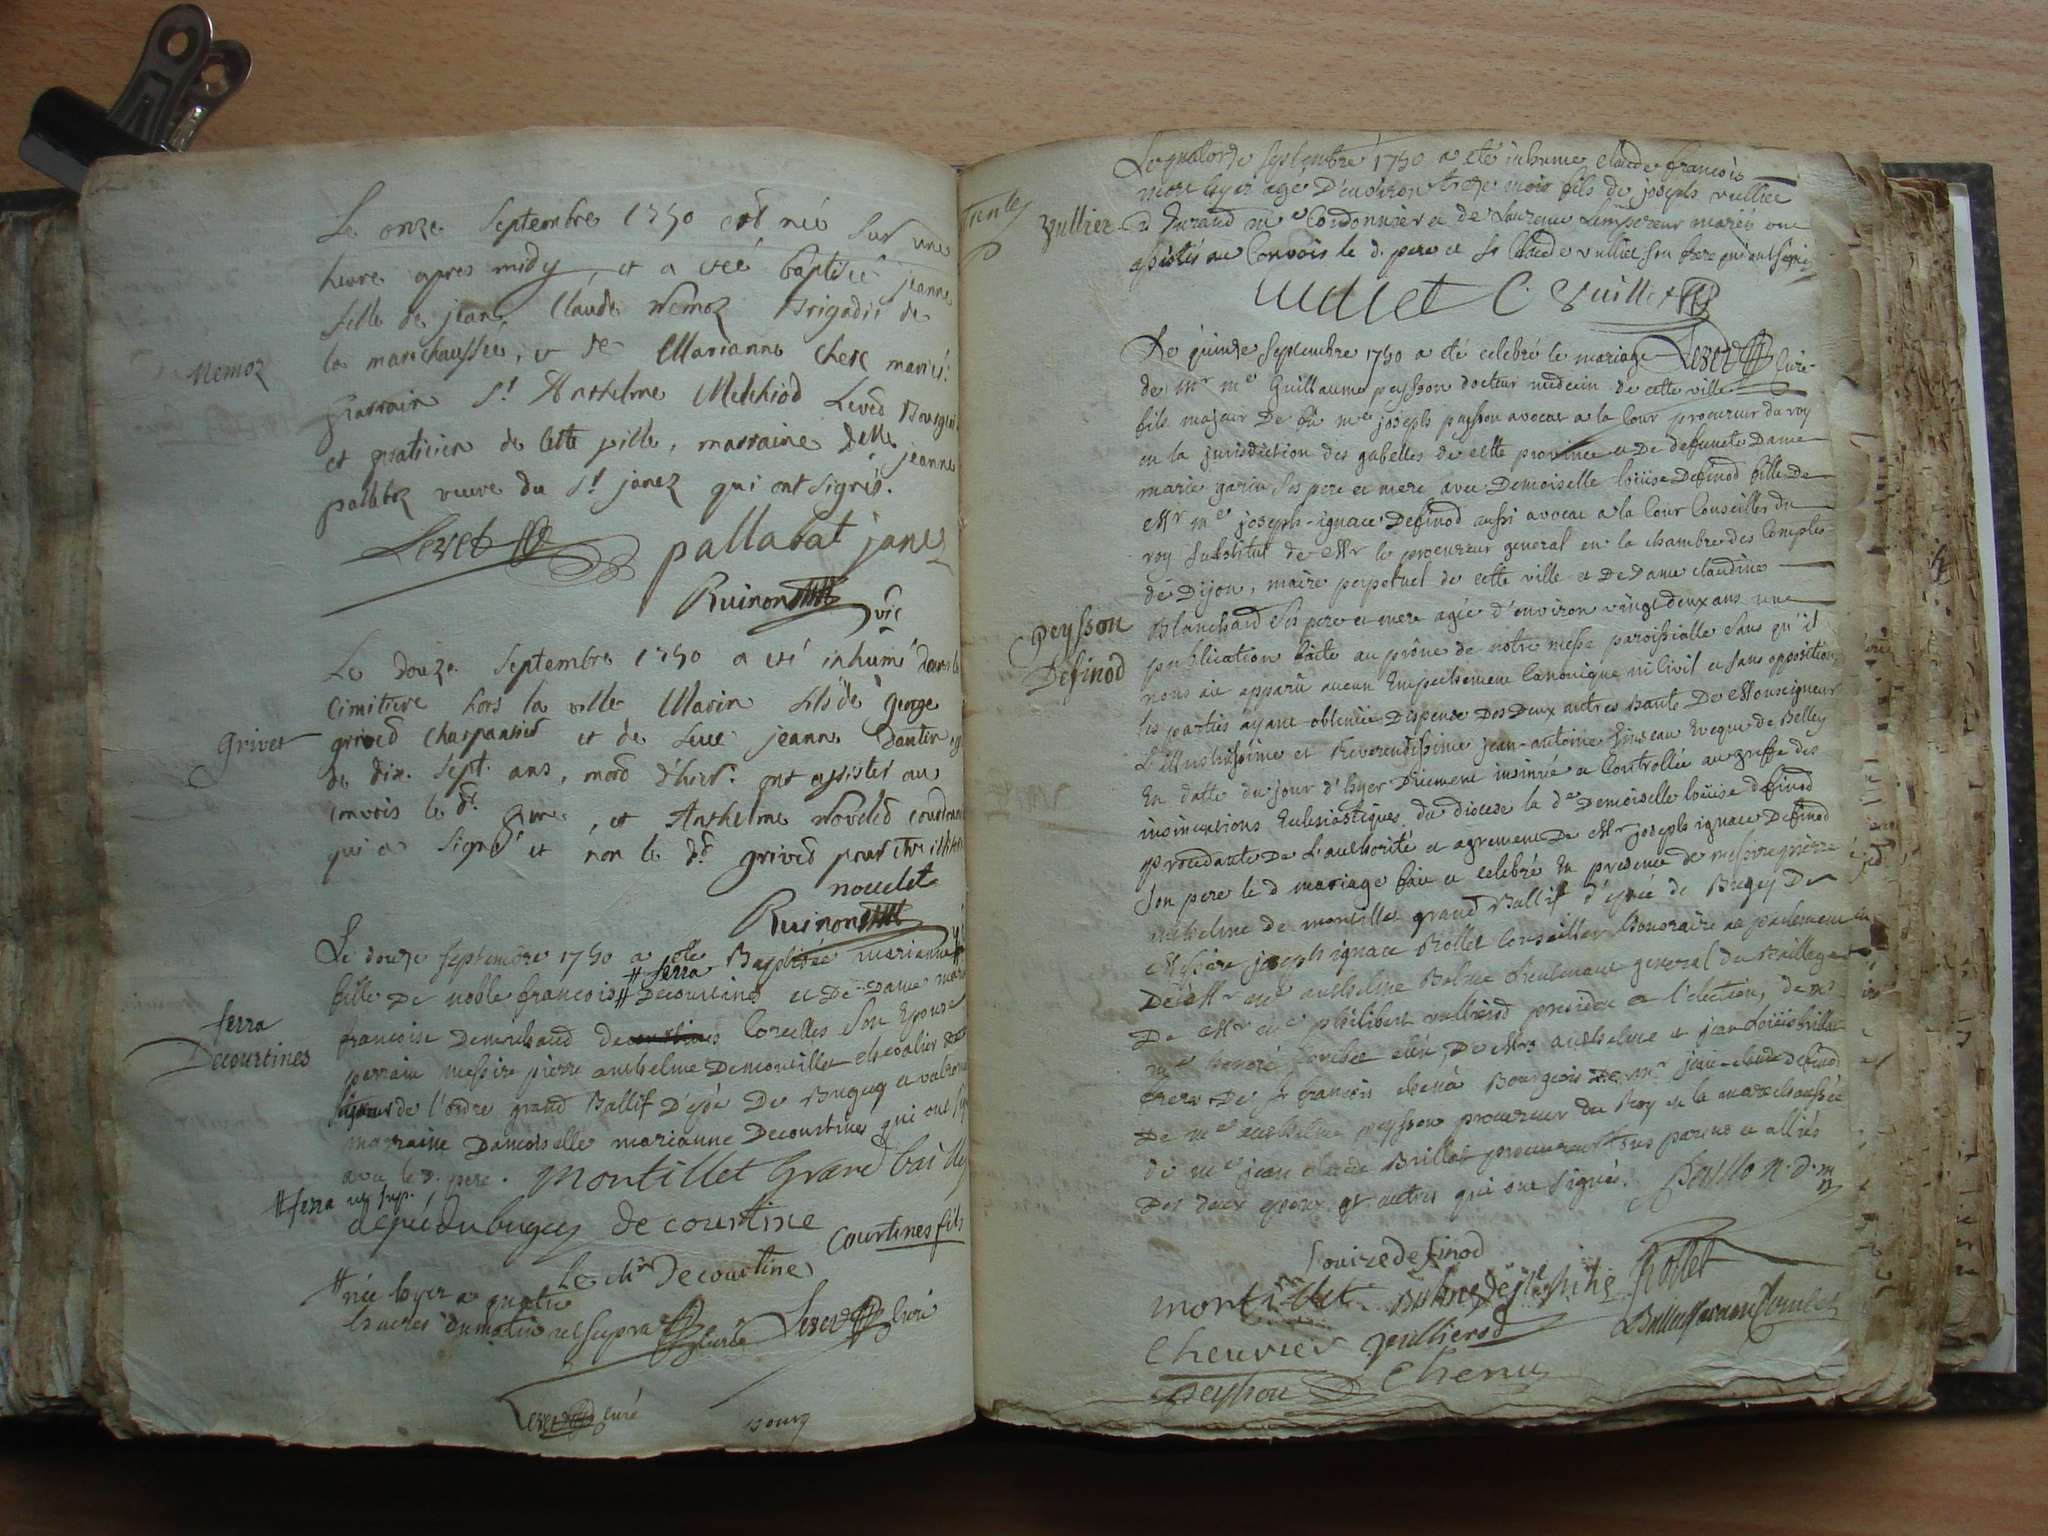 Le onze Septembre 1750 est née sur une
heure apres midy, et a eté baptisée jeanne
fille de jean Claude Nemoz Brigadié de
la marechaussée, et de Marianne Chere mariés.
Nemoz
parrain Sr Anthelme Melchiod Leved Bourgeois
et praticien de cette ville, marraine delle jeanne
pallabaz veuve du Sr janez qui ont signés.
Levet
pallabat janez
Ruinon vic
Le douze Septembre 1750 a eté inhumé dans le
Cimitiere hors la ville Marin fils de george
Grivet
grived Charpantier et de feue jeanne Dantin agé
de dix sept ans, mord d'hier. ont assistés au
convois le dt pere, et Anthelme Noveled
qui a signé et non le dd grived pour etre illiteré
nouelet
Ruinon
Le douze septembre 1750 a eté Baptisée marianne #
# ferra
fille De noble francois # Decourtines et De Dame marie
ferra
Decourtines
francoise Demichaud Corcelles son Epouse
parrain messire pierre anthelme Demontillet chevalier
de l'ordre grand Ballif D'epée De Bugey et valromey
marraine Damoiselle marianne Decourtines qui ont signé
avec le d. pere. Montillet Grand bailly
# ferra ut sup.
depée du bugey de courtine
Courtines fils
le chr Decourtines
# née hyer a quatre
heures du matin ut supra curé Levet curé
Levet curé
Trente
Le quatorze septembre 1750 a eté inhumé claude francois
mort hyer agé D'environ treze mois fils de joseph vulliet
Vulliet
d Durand me Cordonnier et de Laurence Lempereur mariés ont
assistés au Convois le d. pere et Sr Claude vulliet son frere qui ont signé
vulliet C. Vuillet
Levet curé
Le quinze Septembre 1750 a eté celebré le mariage
de mr me Guillaume peysson docteur medecin de cette ville
fils majeur De feu me joseph peysson avocat a la Cour procureur du roy
en la jurisdiction des gabelles de cette province et De defuncte Dame
marie garin ses pere et mere avec Demoiselle loüise Definod fille De
Mr me joseph-ignace Definod aussi avocat a la Cour Conseiller du
roy substitut de Mr le procureur general en la chambre des Comptes
de Dijon, maire perpetuel de cette ville et De Dame claudine
Peysson
Definod
Blanchard ses pere et mere agée d'environ vingt deux ans une
publication faite au prône de notre messe paroissialle sans qu'il
nous ait apparu aucun Empechement Canonique ni Civil et sans opposition
les parties ayant obtenüe Dispense Des Deux autres bants De Monseigneur
L'Illustrissime et Reverendissime jean-antoine Tinseau Eveque de Belley
En datte du jour d'hyer Duement insinuée et Controllée au greffe des
insinuations Eclesiastiques du diocese la de Demoiselle loüise definod
procedante De L'authorité et agrement De Mr joseph ignace Definod
son pere le d mariage fait et celebré En presence de messire pierre
anthelme de montillet grand Ballif d'epée de Bugey De
Messire joseph ignace Rollet Conseiller honoraire au parlement
De Mr me anthelme Balme Lieutenant general du Bailliage
De Mr me philibert vullierod president a l'election, de mr
me honoré elû, De Mrs anthelme et jean Loüis Brillat
freres De Sr francois chenu Bourgeois De mr jean-claude Definod
De me anthelme peysson procureur du Roy de la marechaussée
de me jean claude Brillat procureur tous parens et alliés
Des deux epoux et autres qui ont signés. Peysson d. m
Louize definod
montillet Rollet
Cheuvier Vullierod
peysson Chenu